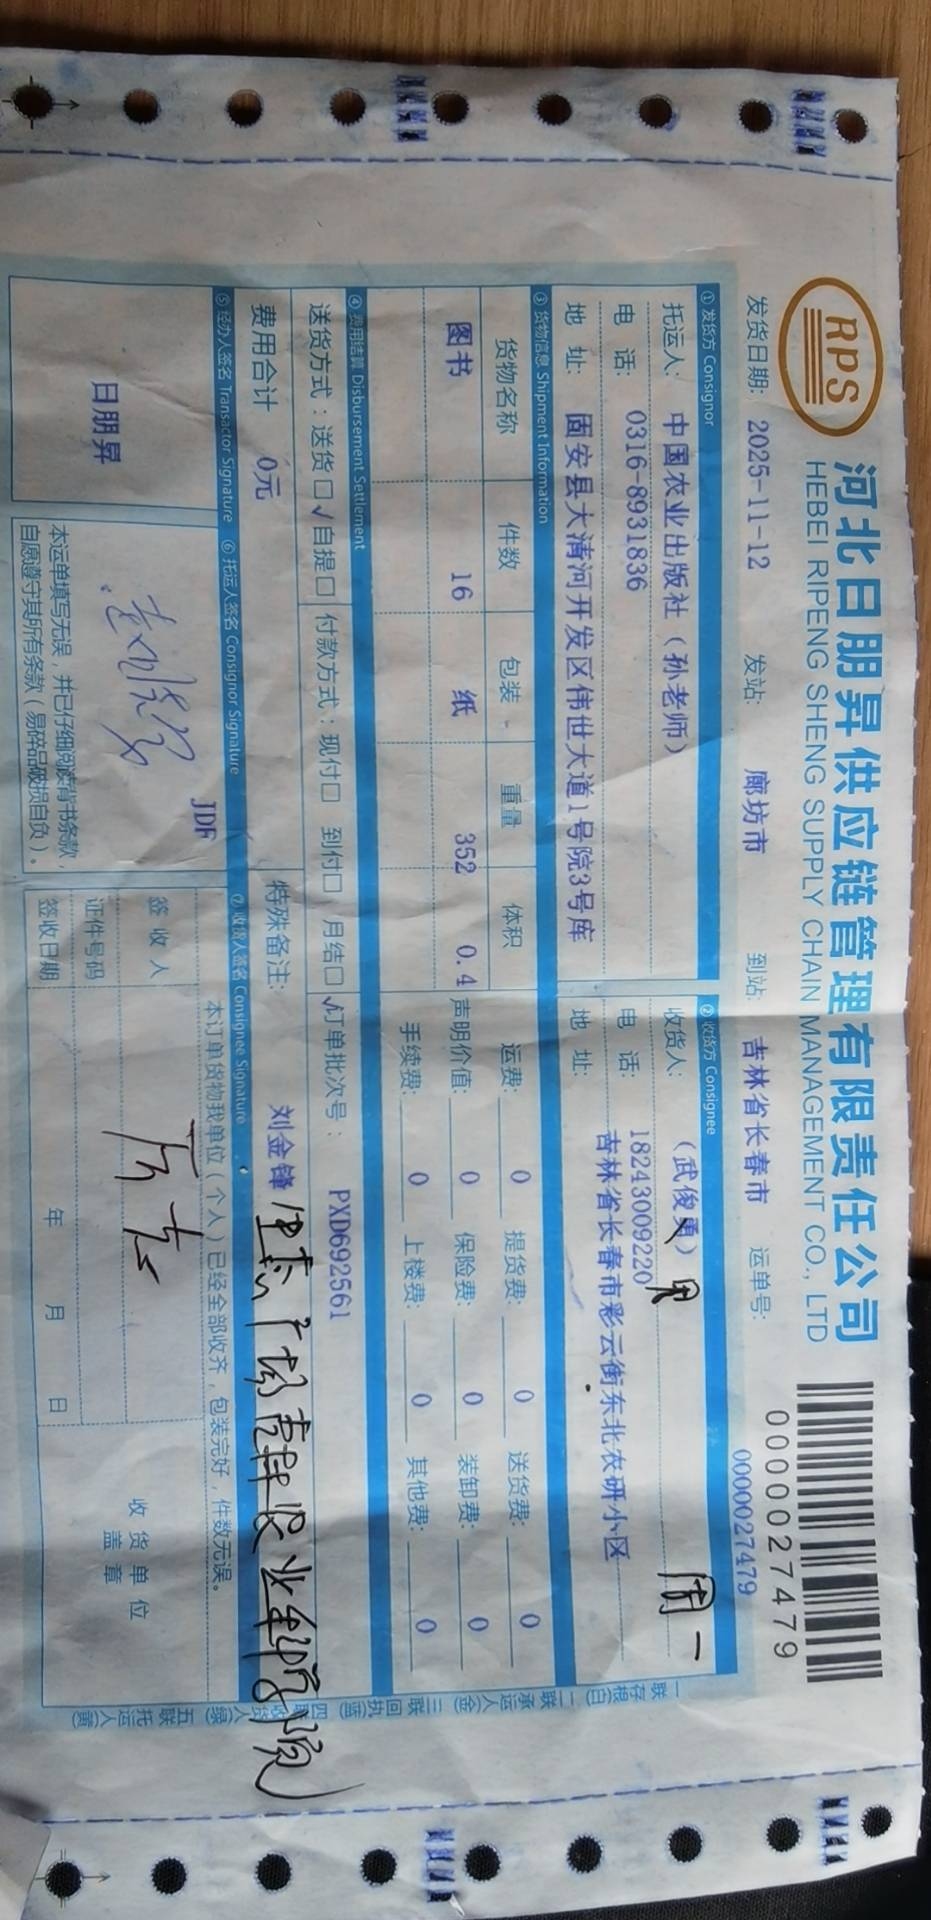 RPS
河北日朋昇供应链管理有限责任公司
HEBEI RIPENG SHENG SUPPLY CHAIN MANAGEMENT CO., LTD
0000027479
发货日期: 2025-11-12 发站: 廊坊市 到站: 吉林省长春市 运单号: 0000027479
① 发货方 Consignor
托运人: 中国农业出版社（孙老师）
电 话: 0316-8931836
地 址: 固安县大清河开发区伟世大道1号院3号库
② 收货方 Consignee
收货人: （武俊勇） 男 周一
电 话: 18243009220
地 址: 吉林省长春市彩云街东北农研小区
③ 货物信息 Shipment Information
货物名称 件数 包装 重量 体积
图书 16 纸 352 0.4
运费: 0 提货费: 0 送货费: 0
声明价值: 0 保险费: 0 装卸费: 0
手续费: 0 上楼费: 0 其他费: 0
④ 费用结算 Disbursement Settlement
送货方式：送货□ √自提□ 付款方式：现付□ 到付□ 月结□ √订单批次号： PXD692561
费用合计 0元 特殊备注: 刘金锋
⑤ 经办人签名 Transactor Signature ⑥ 托运人签名 Consignor Signature ⑦ 收货人签名 Consignee Signature
日朋昇
JDF
本运单填写无误，并已仔细阅读背书条款
自愿遵守其所有条款（易碎品破损自负）。
本订单货物我单位（个人）已经全部收齐，包装完好，件数无误。
签 收 人
证件号码
签收日期 年 月 日
收货单位
盖章
一联 存根(白) 二联 承运人(金) 三联 回执(蓝) 四联 收货人(绿) 五联 托运人(黄)